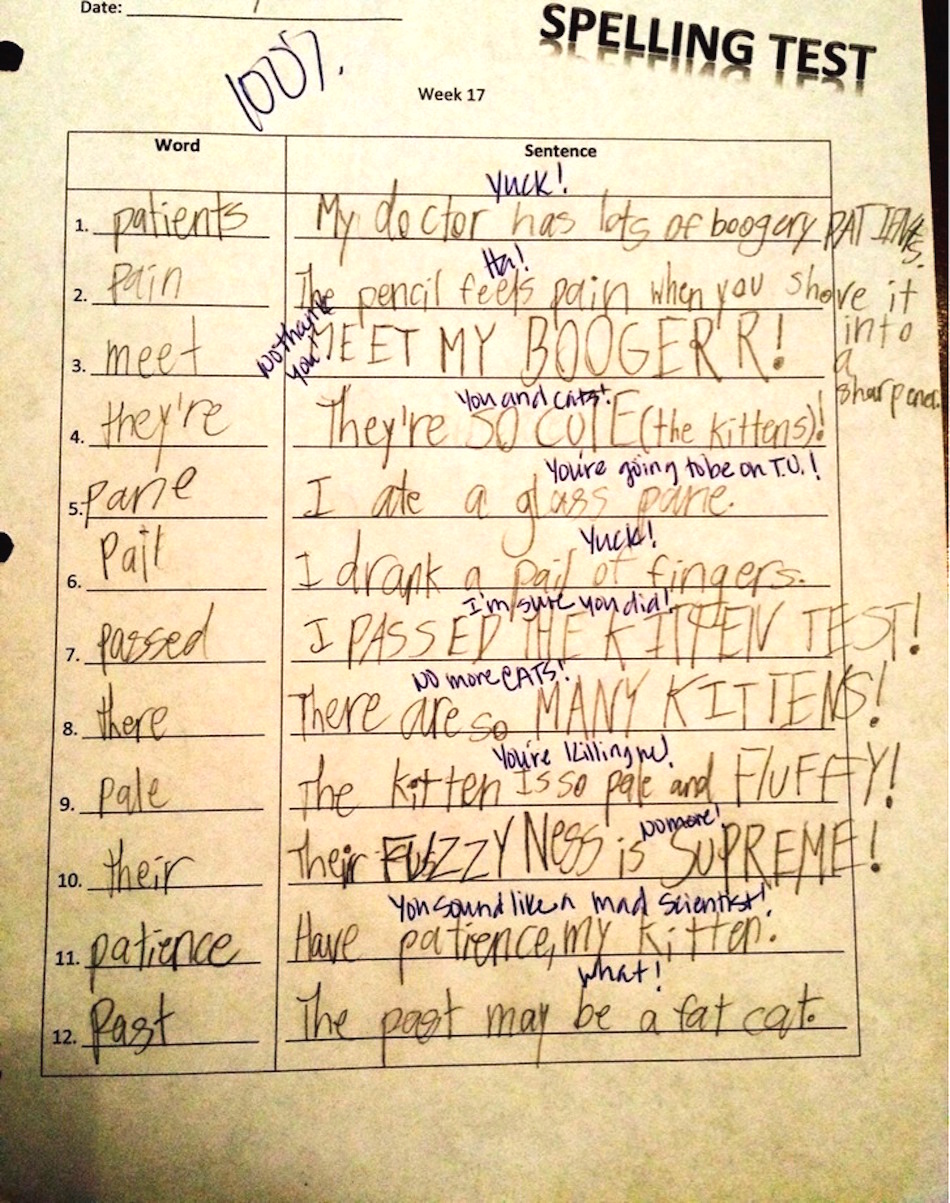 Date:
SPELLING TEST
100%
Week 17
Word Sentence
Yuck!
1. patients My doctor has lots of boogery PATIENTS.
Ha!
2. pain The pencil feels pain when you shove it
into
a
sharpener.
No thank
you!
3. meet MEET MY BOOGER R!
You and cats!
4. they're They're SO CUTE (the kittens)!
You're going to be on T.V.!
5. pane I ate a glass pane.
Yuck!
6. Pail I drank a pail of fingers.
I'm sure you did!
7. passed I PASSED THE KITTEN TEST!
No more CATS!
8. there There are so MANY KITTENS!
You're killing me!
9. pale The kitten Is so pale and FluFFY!
No more!
10. their Their FUZZYNess is SUPREME!
You sound like a mad scientist!
11. patience Have patience, my kitten.
What!
12. Past The past may be a fat cat.